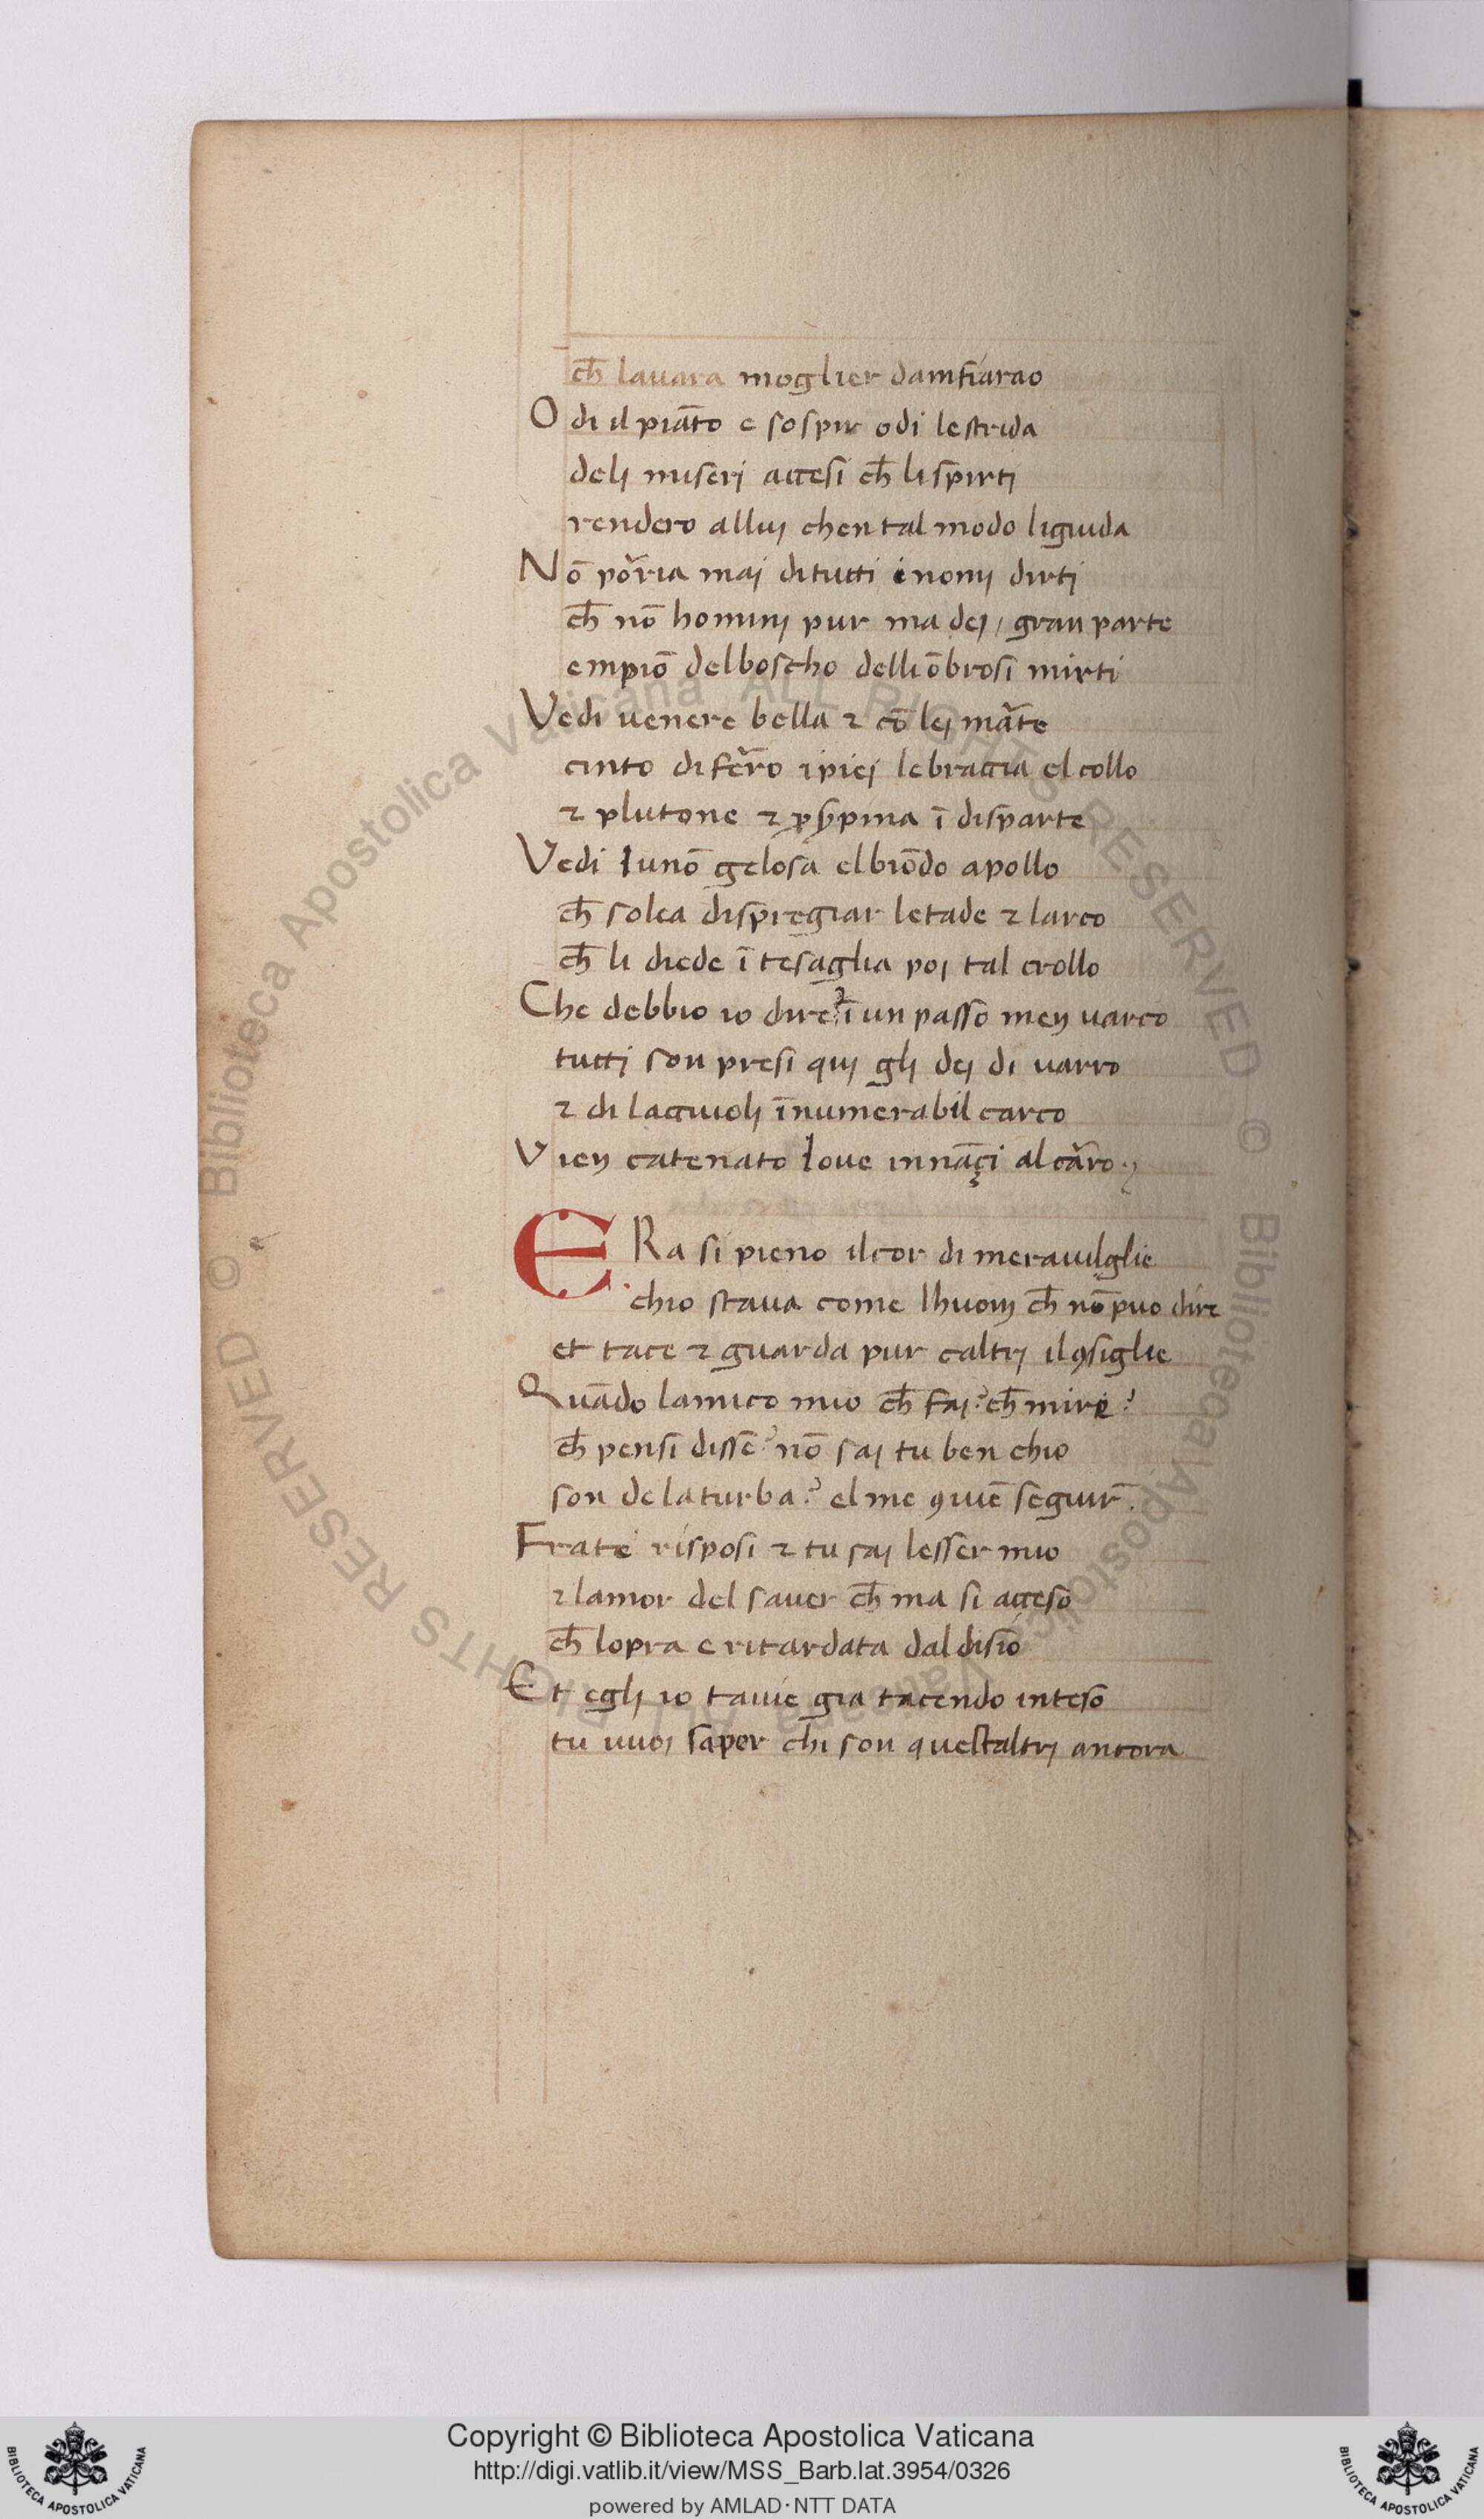 ch̄ lauara moglier damfiarao
Odi il piāto e sospir odi le strida
delj miserj accesi ch̄ li sp̄irtj
rendero alluj chen tal modo li guida
Nō por̄ia maj di tutti i nomj dirtj
ch̄ nō hominj pur ma dej, gran parte
empiō del boscho delli ōbrosi mirti
Vedi uenere bella ⁊ cō lej mār̄te
cinto di fer̄o i piej le braccia el collo
⁊ plutone ⁊ ꝓsꝑpina ī disparte
Vedi Iunō gelosa el biōdo apollo
ch̄ solea dispregiar letade ⁊ larco
ch̄ li diede ī tesaglia poj tal crollo
Che debbio io dire? ī un passo men uarco
tuttj son presi quj glj dej di uarro
⁊ di laccuiolj īnumerabil carco
Vien catenato Ioue innāçi al car̄o
ERa si pieno il cor di merauilglie
chio staua come lhuom ch̄ nō puo dire
et tace ⁊ guarda pur caltrj il ꝯsiglie
Quādo lamico mio ch̄ faj? ch̄ mire?
ch̄ pensi disse? nō saj tu ben chio
son de la turba? el me ꝯuiē seguir̄.
Frate risposi ⁊ tu saj lesser mio
⁊ lamor del sauer ch̄ ma si acceso
ch̄ lopra e ritardata dal disio
Et eglj io tauie gia tacendo inteso
tu uuoj saper chi son questaltrj ancora
Copyright © Biblioteca Apostolica Vaticana
http://digi.vatlib.it/view/MSS_Barb.lat.3954/0326
powered by AMLAD·NTT DATA